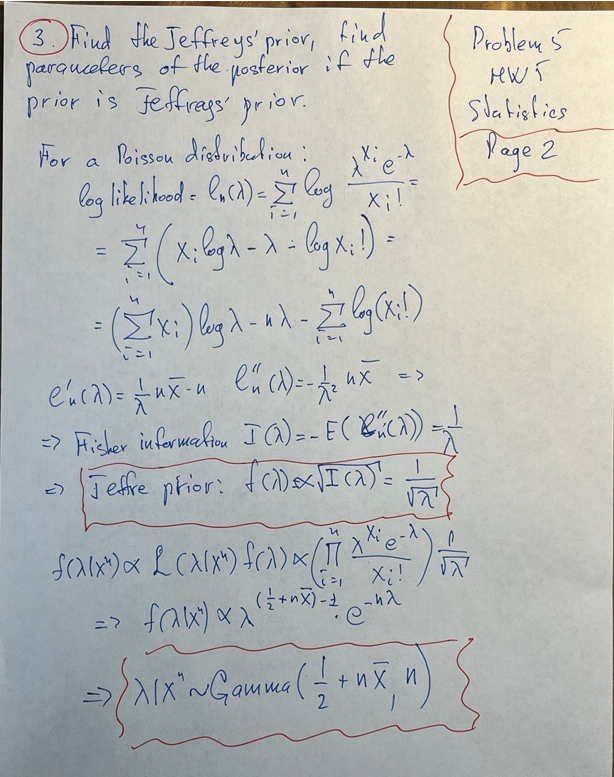 3. Find the Jeffreys' prior, find
parameters of the posterior if the
prior is Jeffreys' prior.
Problem 5
HW 5
Statistics
Page 2
For a Poisson distribution:
log likelihood = ℓₙ(λ) = Σᵢ₌₁ⁿ log (λ^{xᵢ} e^{-λ} / xᵢ!) =
= Σᵢ₌₁ⁿ (xᵢ log λ - λ - log xᵢ!) =
= (Σᵢ₌₁ⁿ xᵢ) log λ - nλ - Σᵢ₌₁ⁿ log(xᵢ!)
ℓ'ₙ(λ) = 1/λ n x̄ - n ℓ''ₙ(λ) = - 1/λ² n x̄ =>
=> Fisher information I(λ) = - E(ℓ''ₙ(λ)) = 1/λ
=> Jeffre prior: f(λ) ∝ √I(λ) = 1/√λ
f(λ|xⁿ) ∝ L(λ|xⁿ) f(λ) ∝ (∏ᵢ₌₁ⁿ λ^{xᵢ} e^{-λ} / xᵢ!) 1/√λ
=> f(λ|xⁿ) ∝ λ^{(1/2 + n x̄) - 1} · e^{-nλ}
=> λ|xⁿ ~ Gamma(1/2 + n x̄, n)